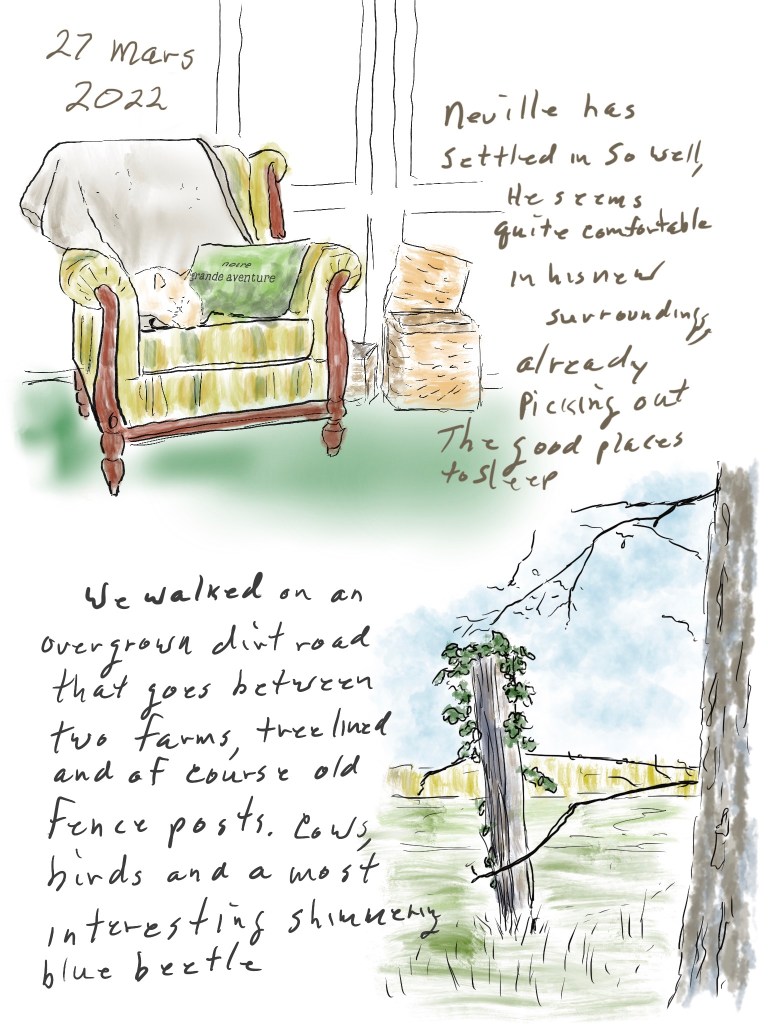 27 mars
2022
Neville has
settled in so well,
He seems
quite comfortable
in his new
surroundings,
already
Picking out
The good places
to sleep
notre
grande aventure
We walked on an
overgrown dirt road
that goes between
two farms, treelined
and of course old
fence posts. Cows,
birds and a most
interesting shimmering
blue beetle